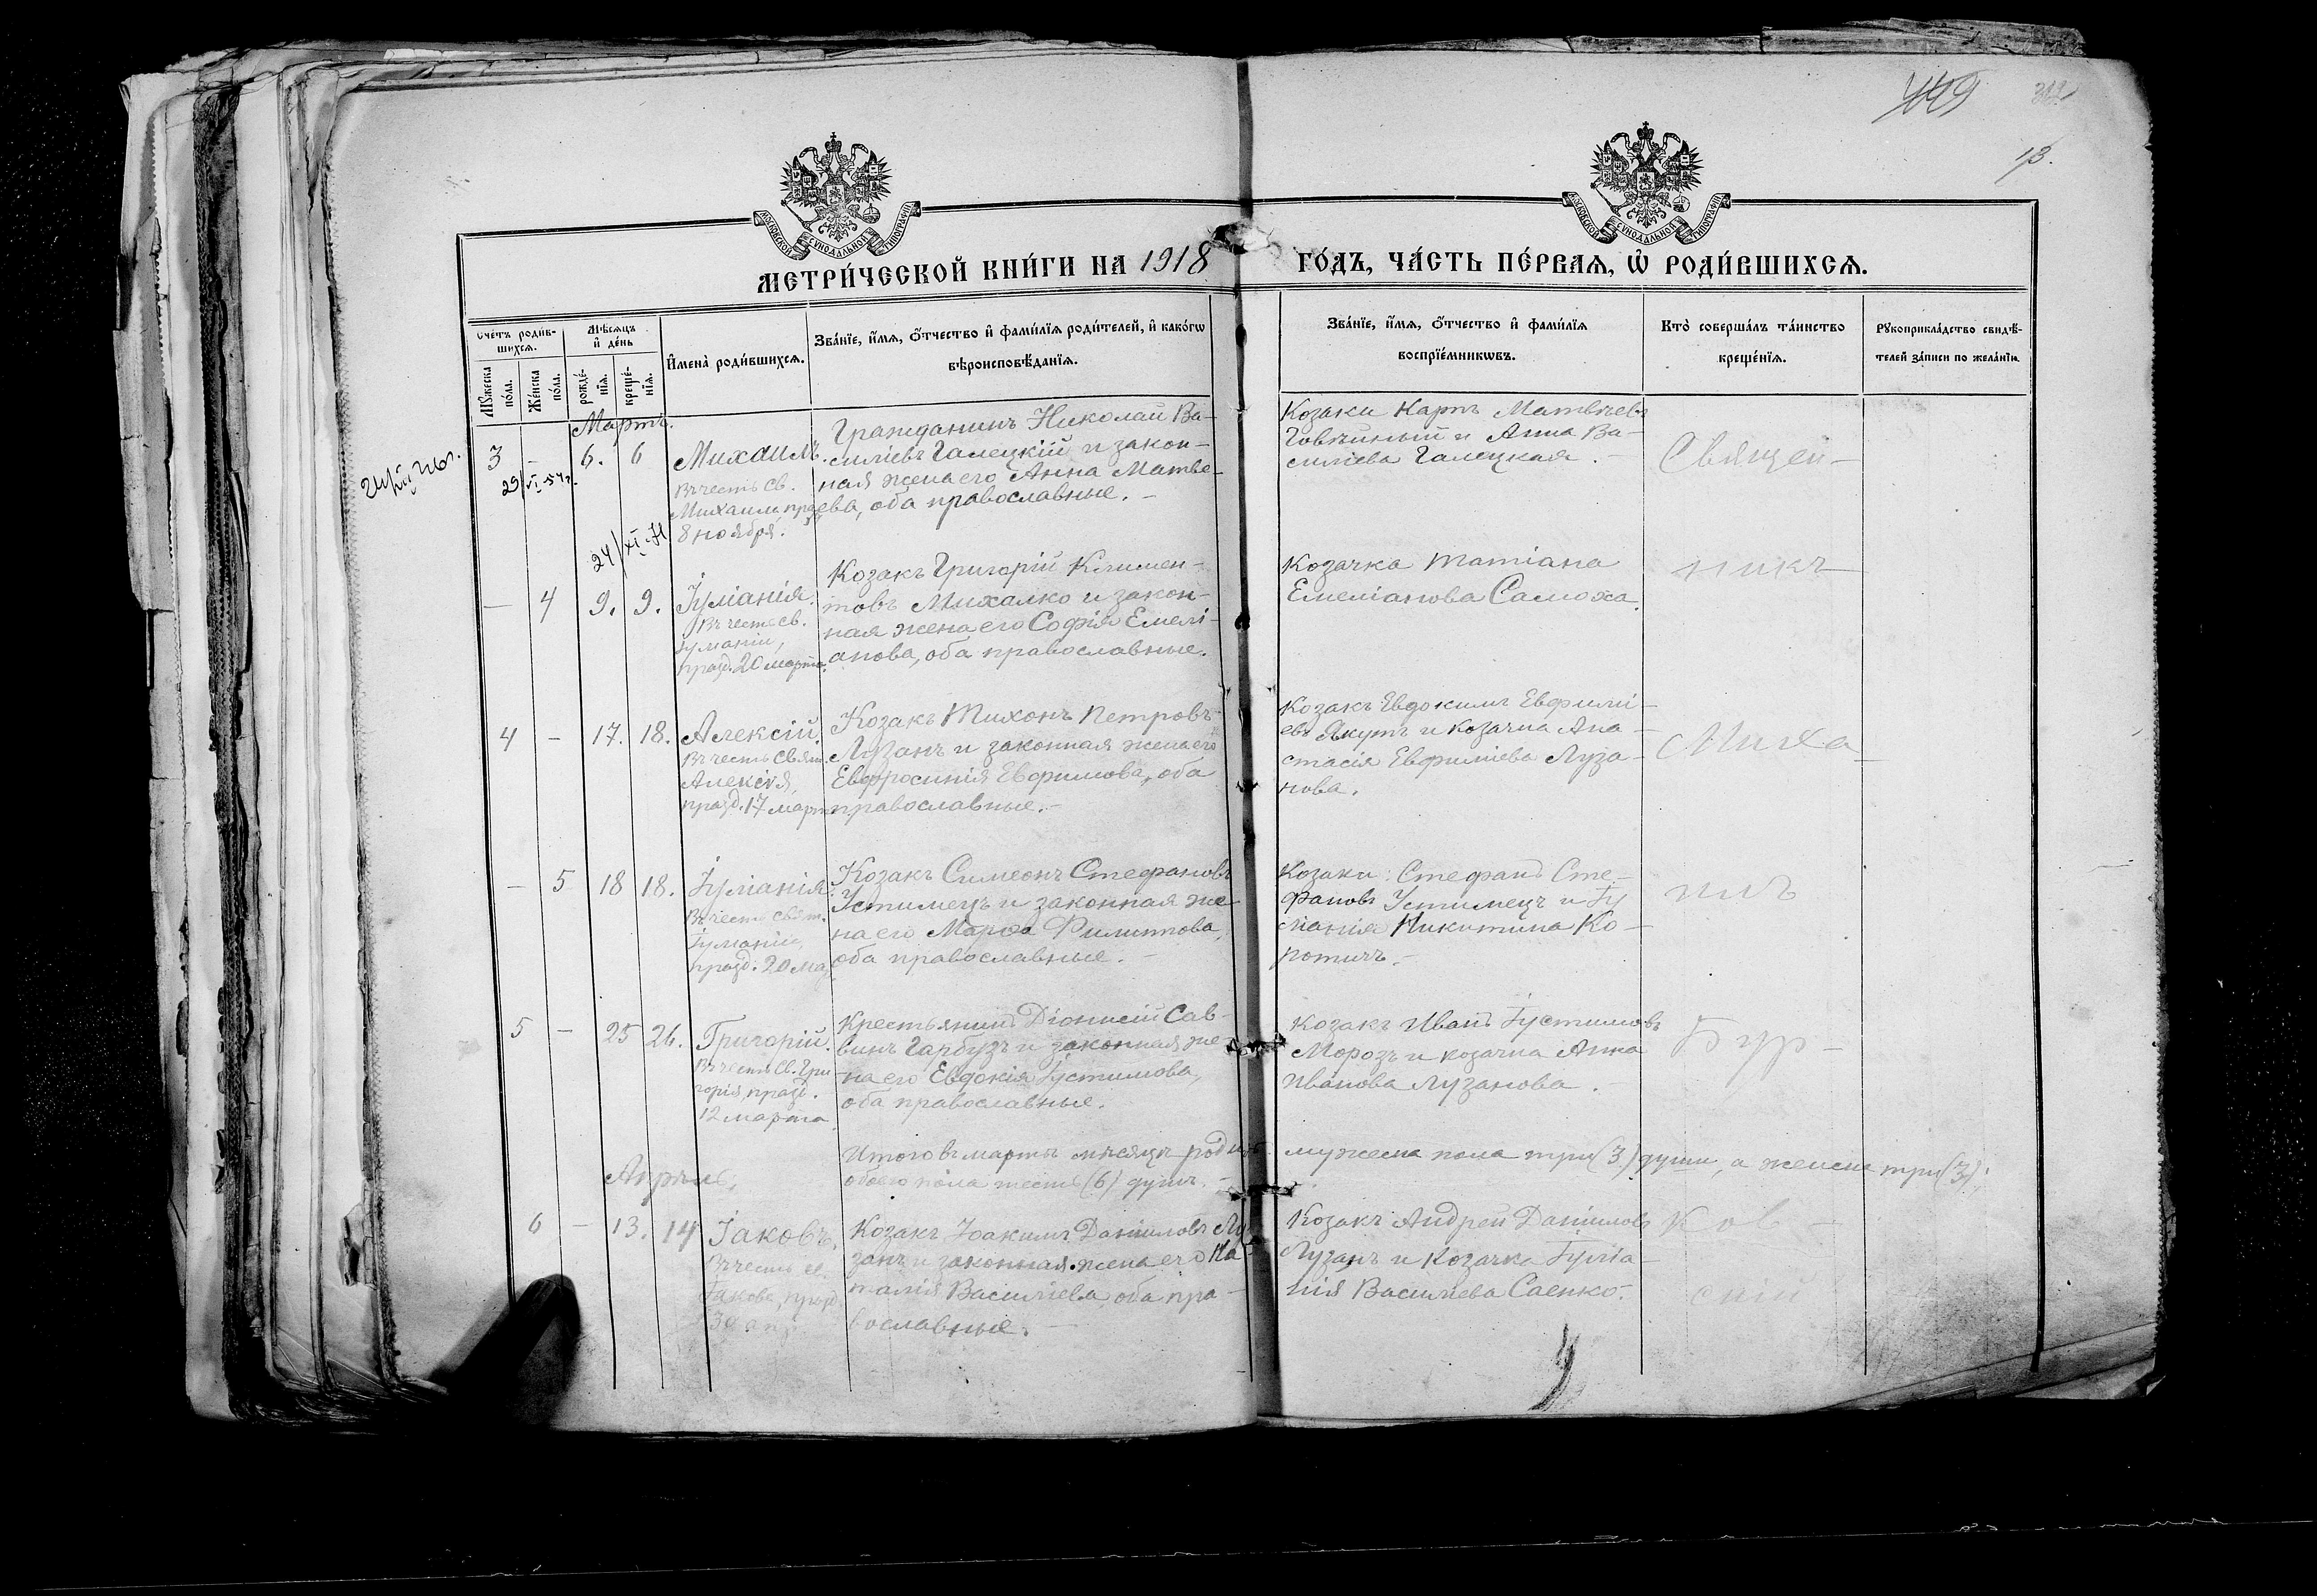 449
13.
МОСКОВСКОЙ СѴНОДАЛЬНОЙ ТИПОГРАФІИ
МОСКОВСКОЙ СѴНОДАЛЬНОЙ ТИПОГРАФІИ
МЕТРИ́ЧЕСКОЙ КНИ́ГИ НА 1918 ГО́ДЪ, ЧА́СТЬ ПЕ́РВАЯ, Ѡ РОДИ́ВШИХСѦ.
Счетъ роди́в-
шихсѧ.
Мѣ́сѧцъ
и де́нь
И҆мена̀ роди́вшихсѧ.
Зва́нїе, и҆́мѧ, ѻ҆́тчество и҆ фами́лїѧ роди́телей, и҆ како́гѡ
вѣроисповѣ́данїѧ.
Зва́нїе, и҆́мѧ, ѻ҆́тчество и҆ фами́лїѧ
воспрїе́мникѡвъ.
Кто̀ соверша́лъ та́инство
креще́нїѧ.
Рꙋкоприкла́дство свидѣ́-
телей за́писи по жела́нїю.
Мꙋ́жеска
по́ла.
Же́нска
по́ла.
рожде́-
нїѧ.
креще́-
нїѧ.
Мартъ.
3 – 6. 6 Михаилъ.
29/VI-54г.
Въ честь св.
Михаила, пра
8 ноября.
Гражданинъ Николай Ва-
силіевъ Галецкій и закон-
ная жена его Анна Матве-
ева, оба православные. –
Козаки Карпъ Матвѣевъ
и Анна Ва-
силіева Галецкая. –
Священ-
24/XI-71
– 4 9. 9. Іуліанія.
Въ честь св.
Іуліаніи,
празд. 20 марта.
Козакъ Григорій Климен-
товъ Михалко и закон-
ная жена его Софія Емелі-
анова, оба православные.
Козачка Татіана
Емеліанова Самоха.
никъ
4 – 17. 18. Алексій.
Въ честь Свят.
Алексія,
празд. 17 март
Козакъ Тихонъ Петровъ
Лузанъ и законная жена его
Евфросинія Евфимова, оба
православные. –
Козакъ Евдокимъ Евфимі-
евъ Якутъ и козачка Ана-
стасія Евфиміева Луза-
нова.
Миха-
– 5 18 18. Іуліанія.
Въ честь свят.
Іуліаніи,
празд. 20 ма
Козакъ Симеонъ Стефановъ
Устимецъ и законная же-
на его Марѳа Филиппова,
оба православные. –
Козаки: Стефанъ Сте-
фановъ Устимецъ и Іу
ліанія Никитина Ко-
ротичъ. –
илъ
5 – 25 26. Григорій.
Въ честь Св. Гри
горія, празд.
12 марта
Крестьянинъ Діонисій Сав-
винъ Гарбузъ и законная же-
на его Евдокія Іустинова,
оба православные.
Козакъ Иванъ Іустиновъ
Морозъ и козачка Анна
Иванова Лузанова. –
Бур-
Итого въ мартѣ мѣсяцѣ родилось мужеска пола три (3) души, а женска три (3);
обоего пола шесть (6) душъ. –
Апрѣль.
6 – 13. 14 Іаковъ.
Въ честь св.
Іакова, празд.
30 апр.
Козакъ Іоакимъ Даніиловъ Лу
занъ и законная жена его На-
талія Василіева, оба пра-
вославные. –
Козакъ Андрей Даніиловъ
Лузанъ и Козачка Іуліа-
нія Василіева Саенко.
Ков-
скій